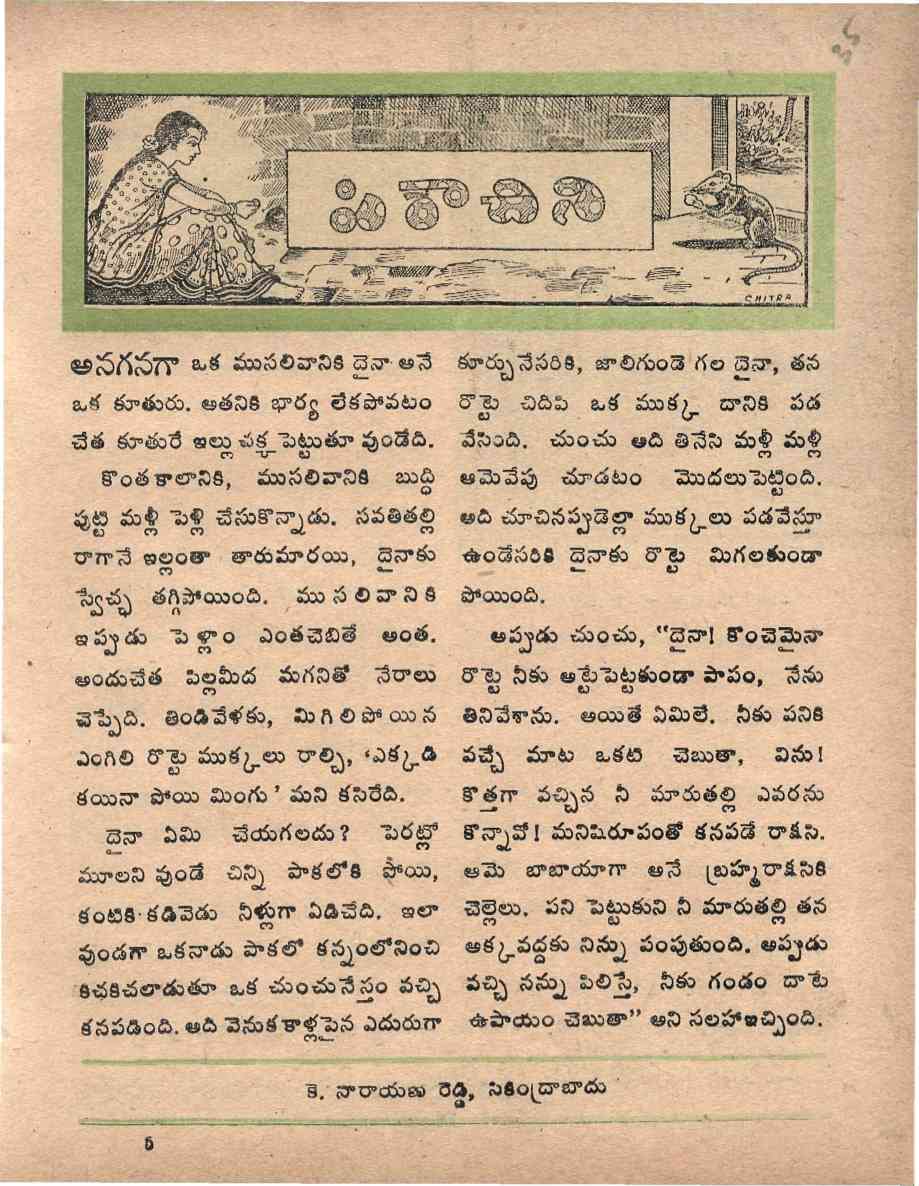 35
పిశాచిని
CHITRA
అనగనగా ఒక ముసలివానికి దైనా అనే
ఒక కూతురు. అతనికి భార్య లేకపోవటం
చేత కూతురే ఇల్లు చక్క పెట్టుతూ వుండేది.
కొంతకాలానికి, ముసలివానికి బుద్ధి
పుట్టి మళ్లీ పెళ్లి చేసుకొన్నాడు. సవతితల్లి
రాగానే ఇల్లంతా తారుమారయి, దైనాకు
స్వేచ్ఛ తగ్గిపోయింది. ముసలివానికి
ఇప్పుడు పెళ్లాం ఎంతచెబితే అంత.
అందుచేత పిల్లమీద మగనితో నేరాలు
చెప్పేది. తిండివేళకు, మిగిలిపోయిన
ఎంగిలి రొట్టె ముక్కలు రాల్చి, ‘ఎక్కడి
కయినా పోయి మింగు’ మని కసిరేది.
దైనా ఏమి చేయగలదు? పెరట్లో
మూలని వుండే చిన్ని పాకలోకి పోయి,
కంటికి కడివెడు నీళ్లుగా ఏడిచేది. ఇలా
వుండగా ఒకనాడు పాకలో కన్నంలోనించి
కిచకిచలాడుతూ ఒక చుంచునేస్తం వచ్చి
కనపడింది. అది వెనుకకాళ్లపైన ఎదురుగా
కూర్చునేసరికి, జాలిగుండె గల దైనా, తన
రొట్టె చిదిపి ఒక ముక్క దానికి పడ
వేసింది. చుంచు అది తినేసి మళ్లీ మళ్లీ
ఆమెవేపు చూడటం మొదలుపెట్టింది.
అది చూచినప్పుడెల్లా ముక్కలు పడవేస్తూ
ఉండేసరికి దైనాకు రొట్టె మిగలకుండా
పోయింది.
అప్పుడు చుంచు, “దైనా! కొంచెమైనా
రొట్టె నీకు అట్టేపెట్టకుండా పాపం, నేను
తినివేశాను. అయితే ఏమిలే. నీకు పనికి
వచ్చే మాట ఒకటి చెబుతా, విను!
కొత్తగా వచ్చిన నీ మారుతల్లి ఎవరను
కొన్నావో! మనిషిరూపంతో కనపడే రాక్షసి.
ఆమె బాబాయాగా అనే బ్రహ్మరాక్షసికి
చెల్లెలు. పని పెట్టుకుని నీ మారుతల్లి తన
అక్కవద్దకు నిన్ను పంపుతుంది. అప్పుడు
వచ్చి నన్ను పిలిస్తే, నీకు గండం దాటే
ఉపాయం చెబుతా” అని సలహాఇచ్చింది.
కె. నారాయణ రెడ్డి, సికింద్రాబాదు
5